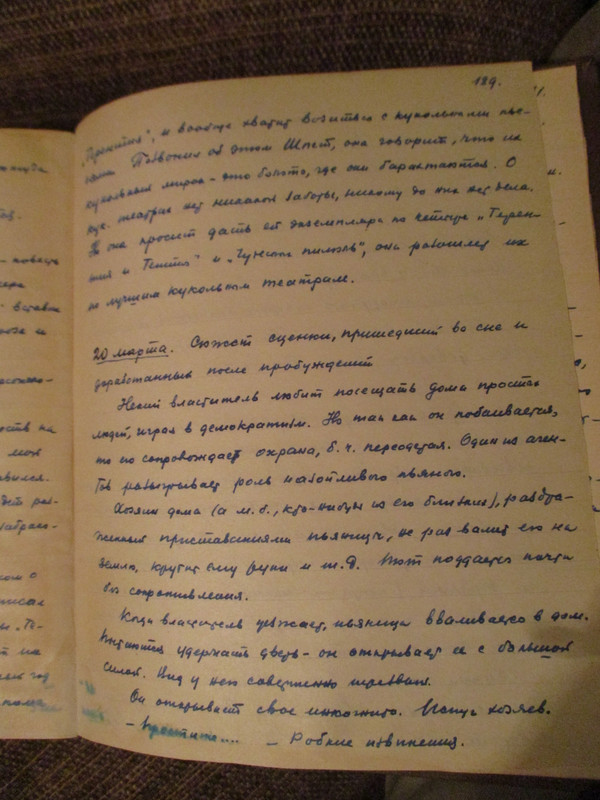 129.
„Терентия", и вообще хватит возиться с кукольными пье-
сами. Позвонил об этом Шпет, она говорит, что их
кукольный мирок – это болото, где они барахтаются. О
кук. театрах нет никакой заботы, никому до них нет дела.
И она просит дать ей экземпляра по четыре „Терен-
тия и Тентия" и „Чужая", она разошлет их
по лучшим кукольным театрам.
20 марта. Сюжет сценки, пришедший во сне и
доработанный после пробуждения
Некий властитель любит посещать дома простых
людей, играя в демократизм. Но так как он побаивается,
то его сопровождает охрана, б. ч. переодетая. Один из аген-
тов разыгрывает роль назойливого пьяного.
Хозяин дома (а м. б., кто-нибудь из его близких), раздра-
женный приставаниями пьяницы, не раз валит его на
землю, крутит ему руки и т.д. Тот поддается почти
без сопротивления.
Когда властитель уезжает, пьяница вваливается в дом.
Пытаются удержать дверь – он открывает ее с большой
силой. Вид у него совершенно трезвый.
Он открывает свое инкогнито. Испуг хозяев.
– Простите.... – Робкие извинения.
– повесть
вставки
мой
год